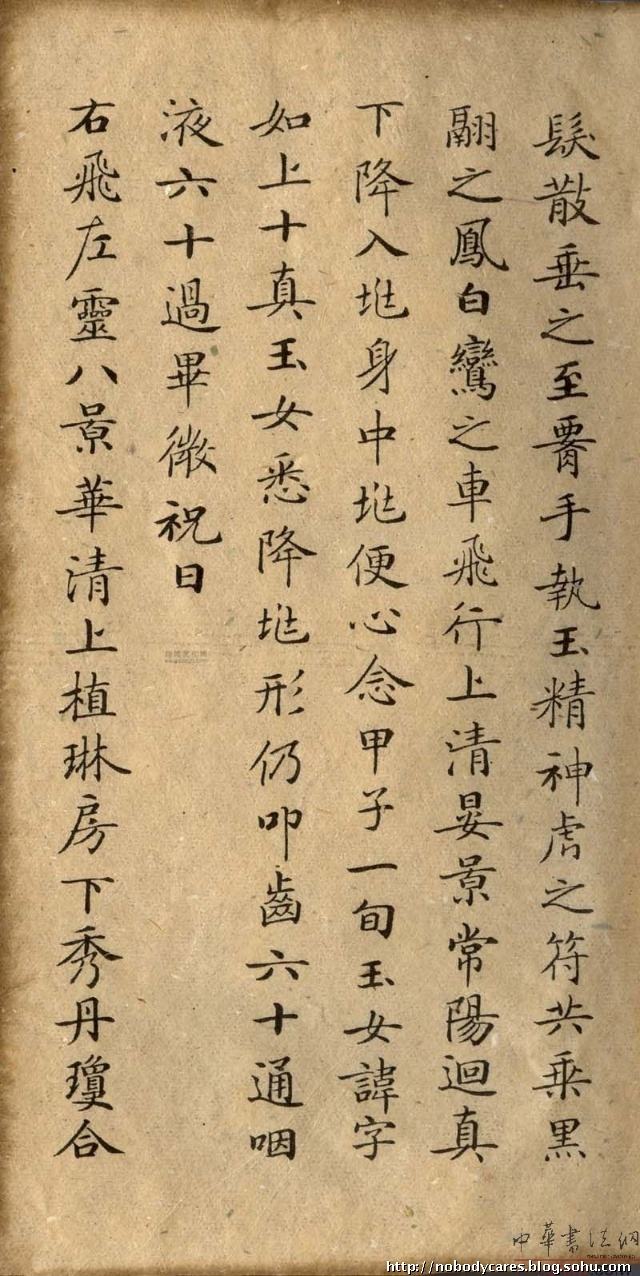 髮散垂之至䯒手執玉精神虎之符共乘黑
翮之鳳白鸞之車飛行上清晏景常陽迴真
下降入𡉏身中𡉏便心念甲子一旬玉女諱字
如上十真玉女悉降𡉏形仍叩齒六十通咽
液六十過畢微祝曰
右飛左靈八景華清上植琳房下秀丹瓊合
中華書法網
http://nobodycares.blog.sohu.com